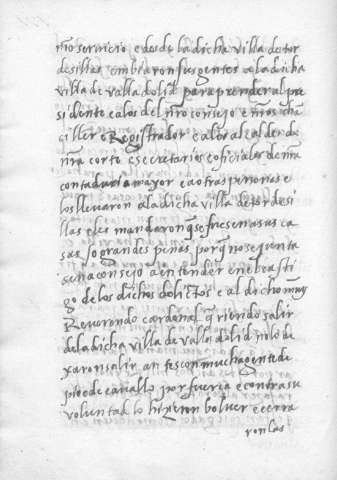 nr̃o servicio e desde la dicha villa de tor
desillas embiaron sus gentes a la dicha
villa de valladolid para prender al pre
sidente e a los del nr̃o consejo e nr̃os chan
ciller e Registrador e a los alcaldes de
nr̃a corte e secretarios e oficiales de nr̃a
contaduria mayor e a otras personas e
los llevaron a la dicha villa de tordesi
llas e les mandaron q̃ se fuesen a sus ca
sas so grandes penas porq̃ no se junta
sen a consejo a entender en el casti
go de los dichos delictos e al dicho muy
Reverendo cardenal q̃riendo salir
de la dicha villa de valladolid no lo de
xaron salir antes con mucha gente de
pie e de cavallo por fuerça e contra su
voluntad lo hizieron bolver e cerra
ron las